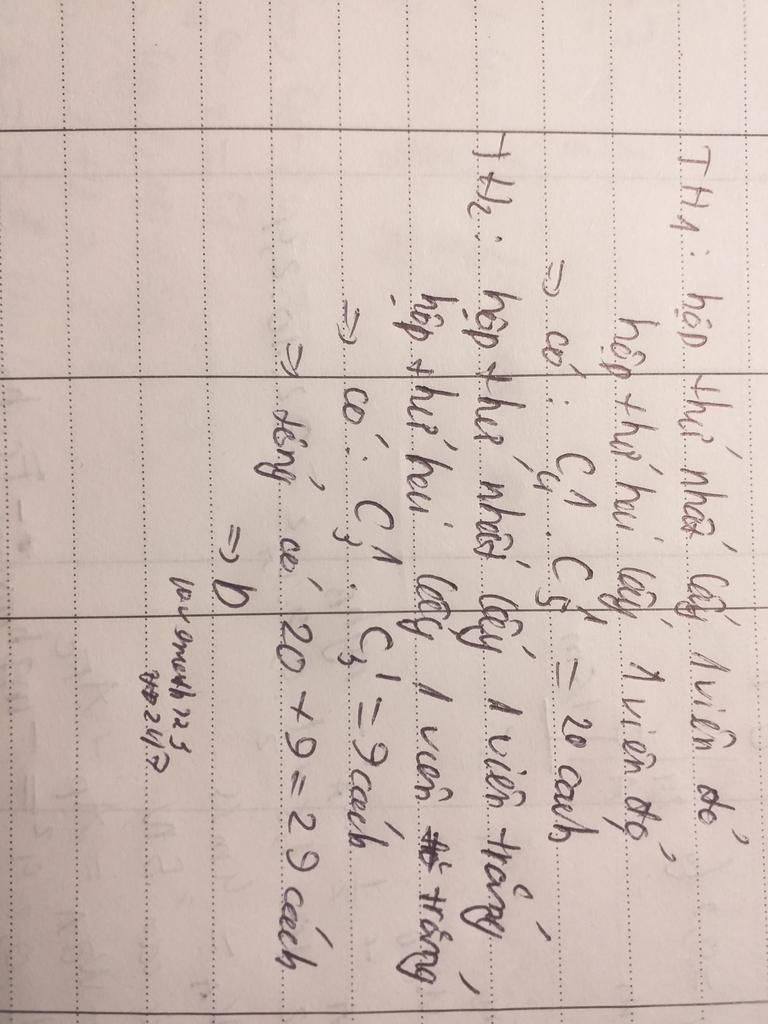 TH1: hộp thứ nhất lấy 1 viên đỏ
hộp thứ hai lấy 1 viên đỏ
=> có: C₄¹ . C₅¹ = 20 cách
TH2: hộp thứ nhất lấy 1 viên trắng
hộp thứ hai lấy 1 viên trắng
=> có: C₃¹ . C₃¹ = 9 cách
=> tổng có 20 + 9 = 29 cách
=> D